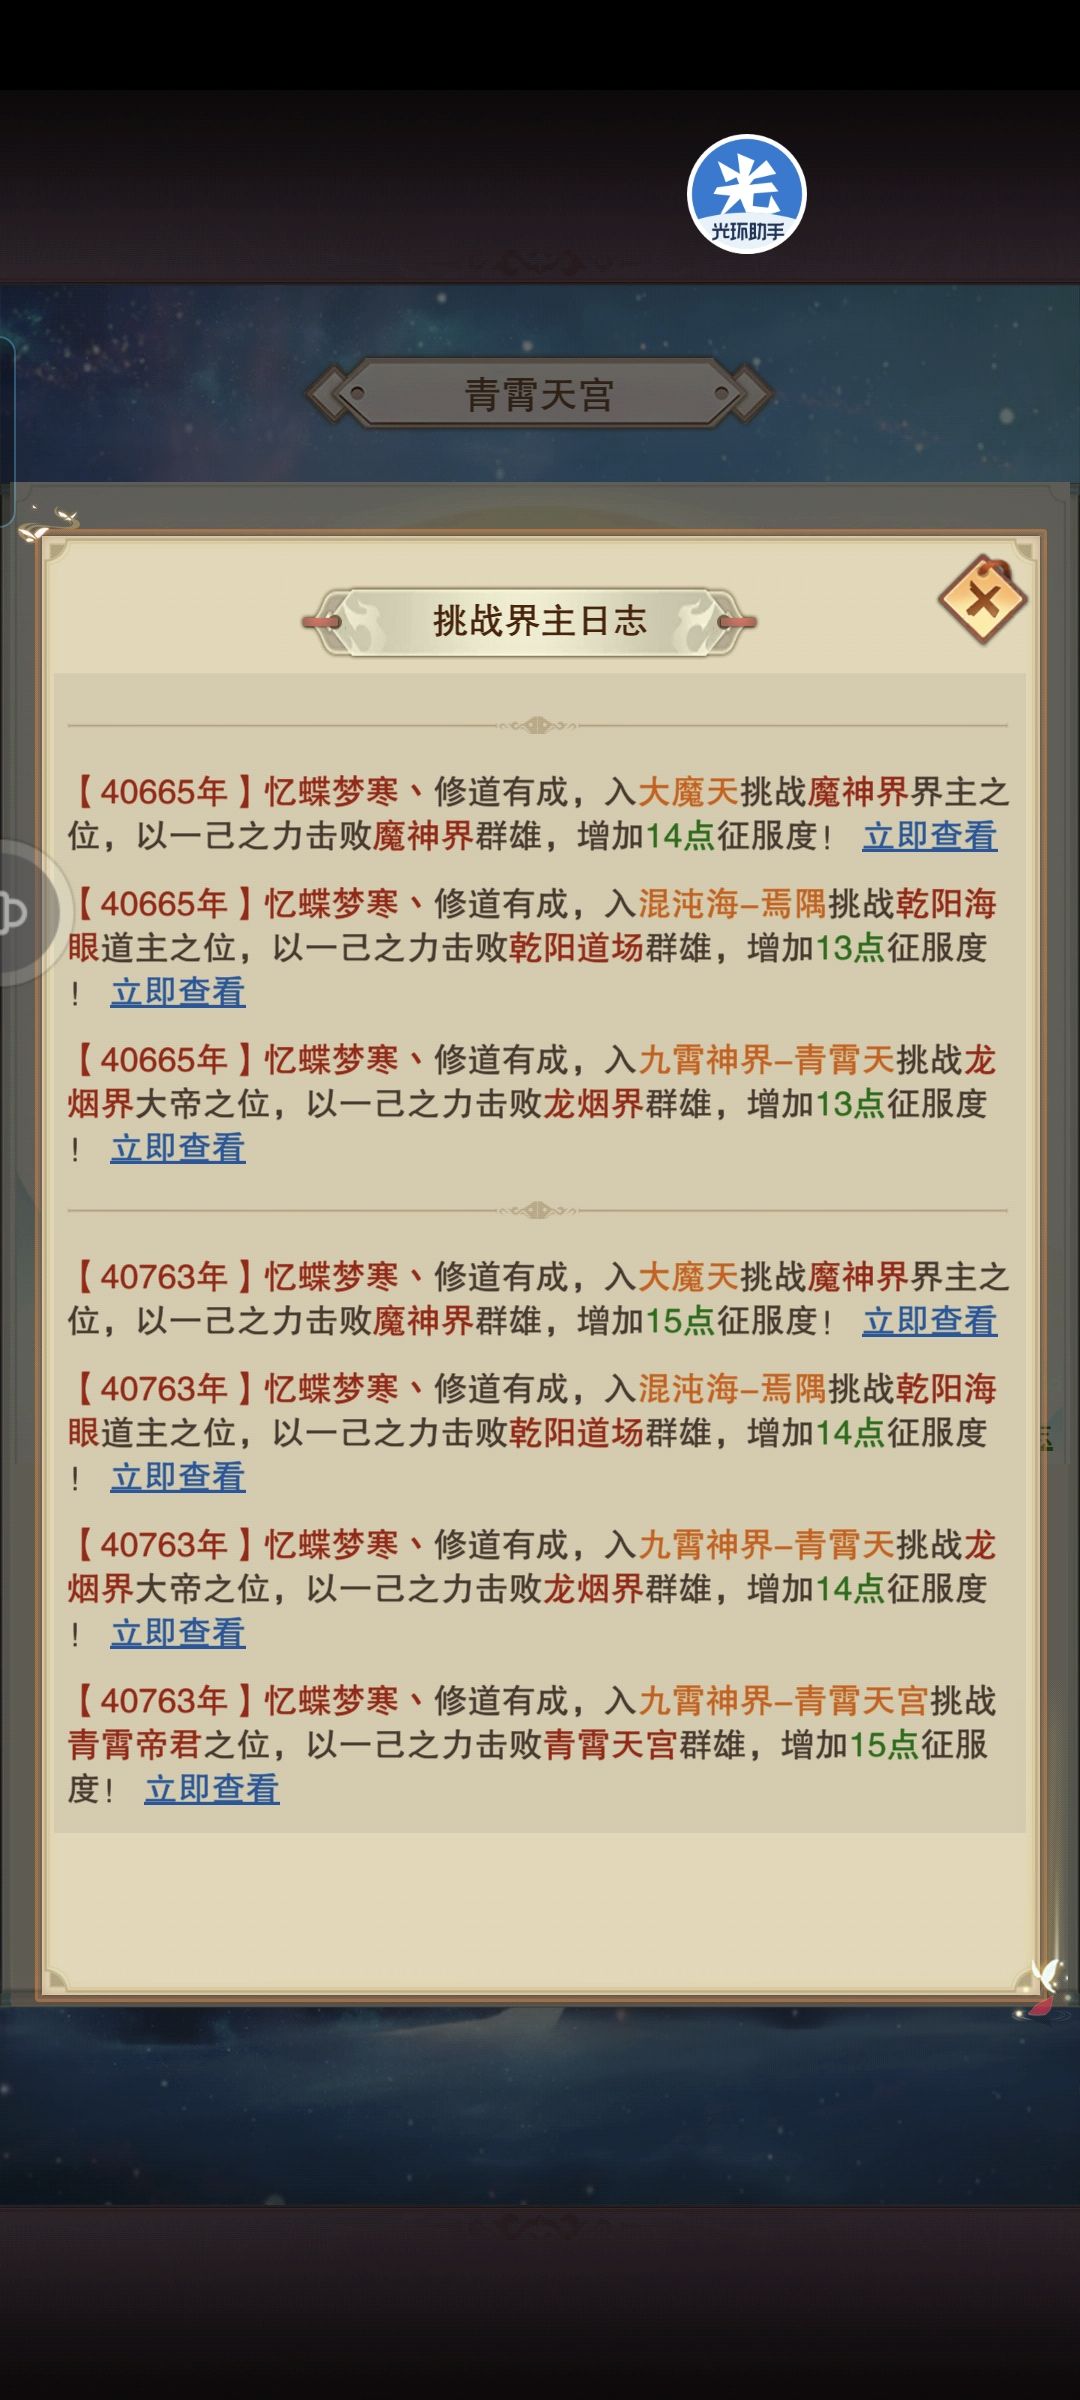 光
光环助手
青霄天宫
挑战界主日志
【40665年】忆蝶梦寒丶修道有成，入大魔天挑战魔神界界主之
位，以一己之力击败魔神界群雄，增加14点征服度！ 立即查看
【40665年】忆蝶梦寒丶修道有成，入混沌海-焉隅挑战乾阳海
眼道主之位，以一己之力击败乾阳道场群雄，增加13点征服度
！ 立即查看
【40665年】忆蝶梦寒丶修道有成，入九霄神界-青霄天挑战龙
烟界大帝之位，以一己之力击败龙烟界群雄，增加13点征服度
！ 立即查看
【40763年】忆蝶梦寒丶修道有成，入大魔天挑战魔神界界主之
位，以一己之力击败魔神界群雄，增加15点征服度！ 立即查看
【40763年】忆蝶梦寒丶修道有成，入混沌海-焉隅挑战乾阳海
眼道主之位，以一己之力击败乾阳道场群雄，增加14点征服度
！ 立即查看
【40763年】忆蝶梦寒丶修道有成，入九霄神界-青霄天挑战龙
烟界大帝之位，以一己之力击败龙烟界群雄，增加14点征服度
！ 立即查看
【40763年】忆蝶梦寒丶修道有成，入九霄神界-青霄天宫挑战
青霄帝君之位，以一己之力击败青霄天宫群雄，增加15点征服
度！ 立即查看